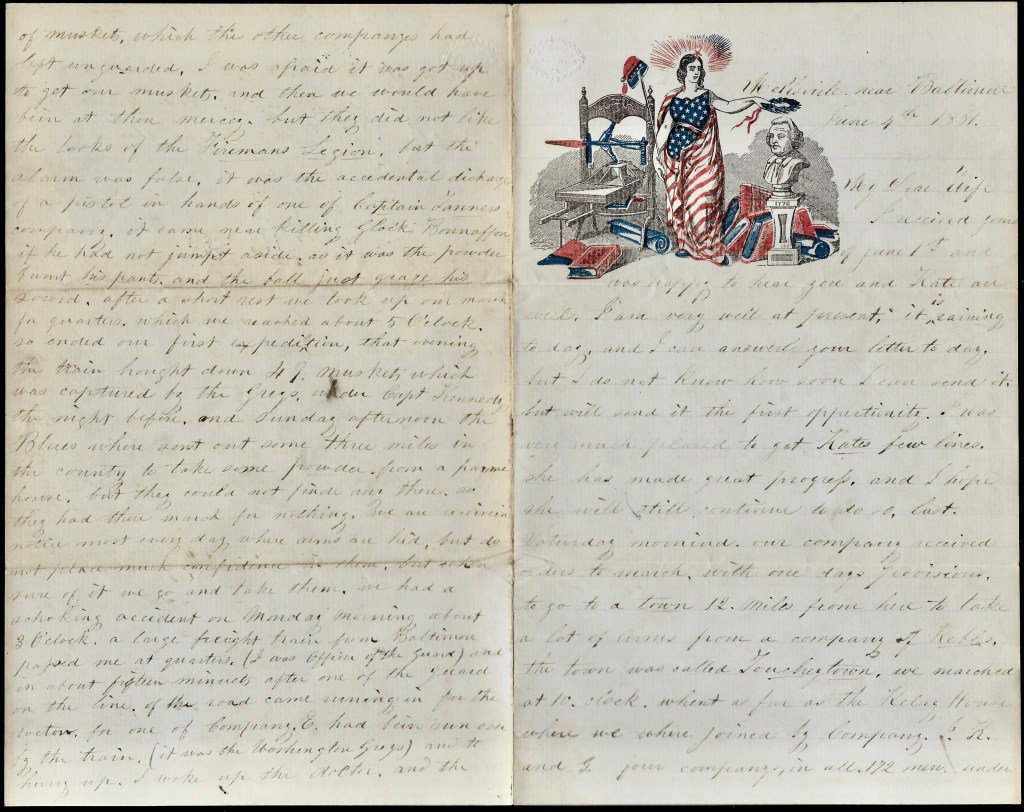 near Baltimore
June 4th 1861.
My Dear Wife
I received yours
of june 1st and
was happy to hear you and Kate are
well. I am very well at present, it is raining
to day, and I can answer your letter to day,
but I do not know how soon I can send it.
but will send it the first oppertunite. I was
very much pleased to get Kates few lines.
she has made great progress, and I hope
she will still continue to do so, last.
Saturday mornind. our company received
orders to march. with one days provisions,
to go to a town 12. miles from here to take
a lot of arms from a company of Rebbls.
the town was called we marched
at 10. clock. whent as far as the House
where we where joined by Company. I. K.
and G four companys, in all. 172 men. under
1776
of muskets, which the other companyes had
left unguarded, I was afraid it was got up
to get our muskets, and then we would have
been at then mercey. but they did not like
the looks of the Firemans Legion, but the
alarm was false, it was the accidental discharge
of a pistol in hands of one of Captain Tanners
company. it came near killing Bonnaffon
if he had not jumpt aside, as it was the powder
burnt his pants, and the ball just graze his
sword. after a short rest we took up our march
for quarters. which we reached about 5 O'clock.
so ended our first expedition, that evening
the train bought down 49. muskets which
was captured by the Greys, under Capt Kennedy
the night before, and sunday afternoon the
Blues where sent out some three miles in
the county to take some powder. from a
house, but they could not finde any there. so
they had there march for nothing. we are receivein
notice most every day where arms are hid, but do
not place much confidence in them. but when
sure of it we go and take them. we had a
schoking accident on Monday morning about
3 O'Clock. a large freight train from Baltimore
passed me at quarters, (I was Officer of the guard) and
in about fifteen minuets after one of the guard
on the line, of the road came runing in for the
docton. for one of Company, E. had been run over
by the train. (it was the Washington Greys) and to
hurry up. I woke up the doctor. and the